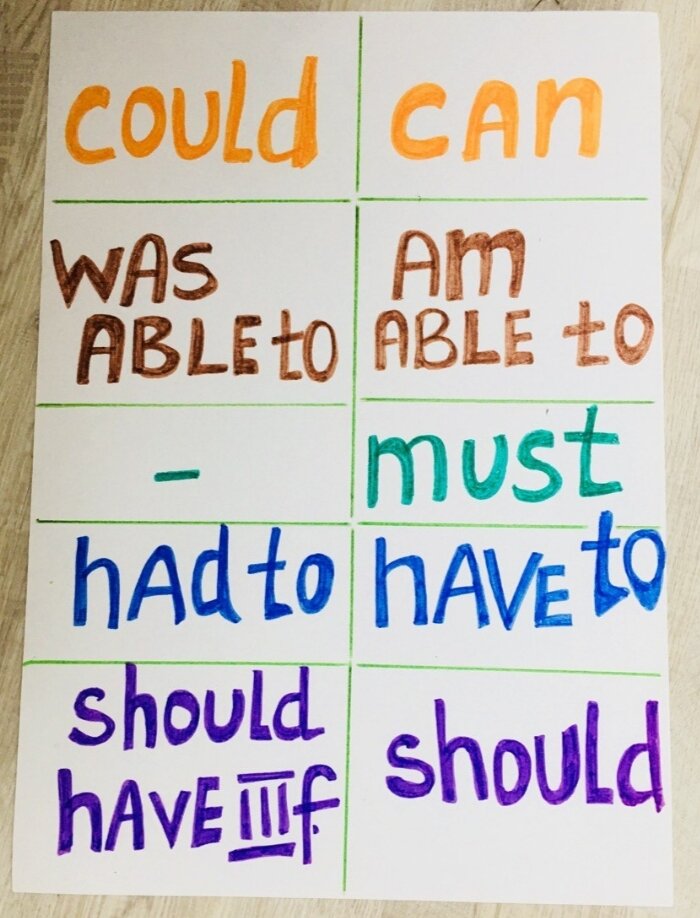 could can
WAS AM
ABLE to ABLE to
- must
hAd to hAVE to
should should
hAVE III f.